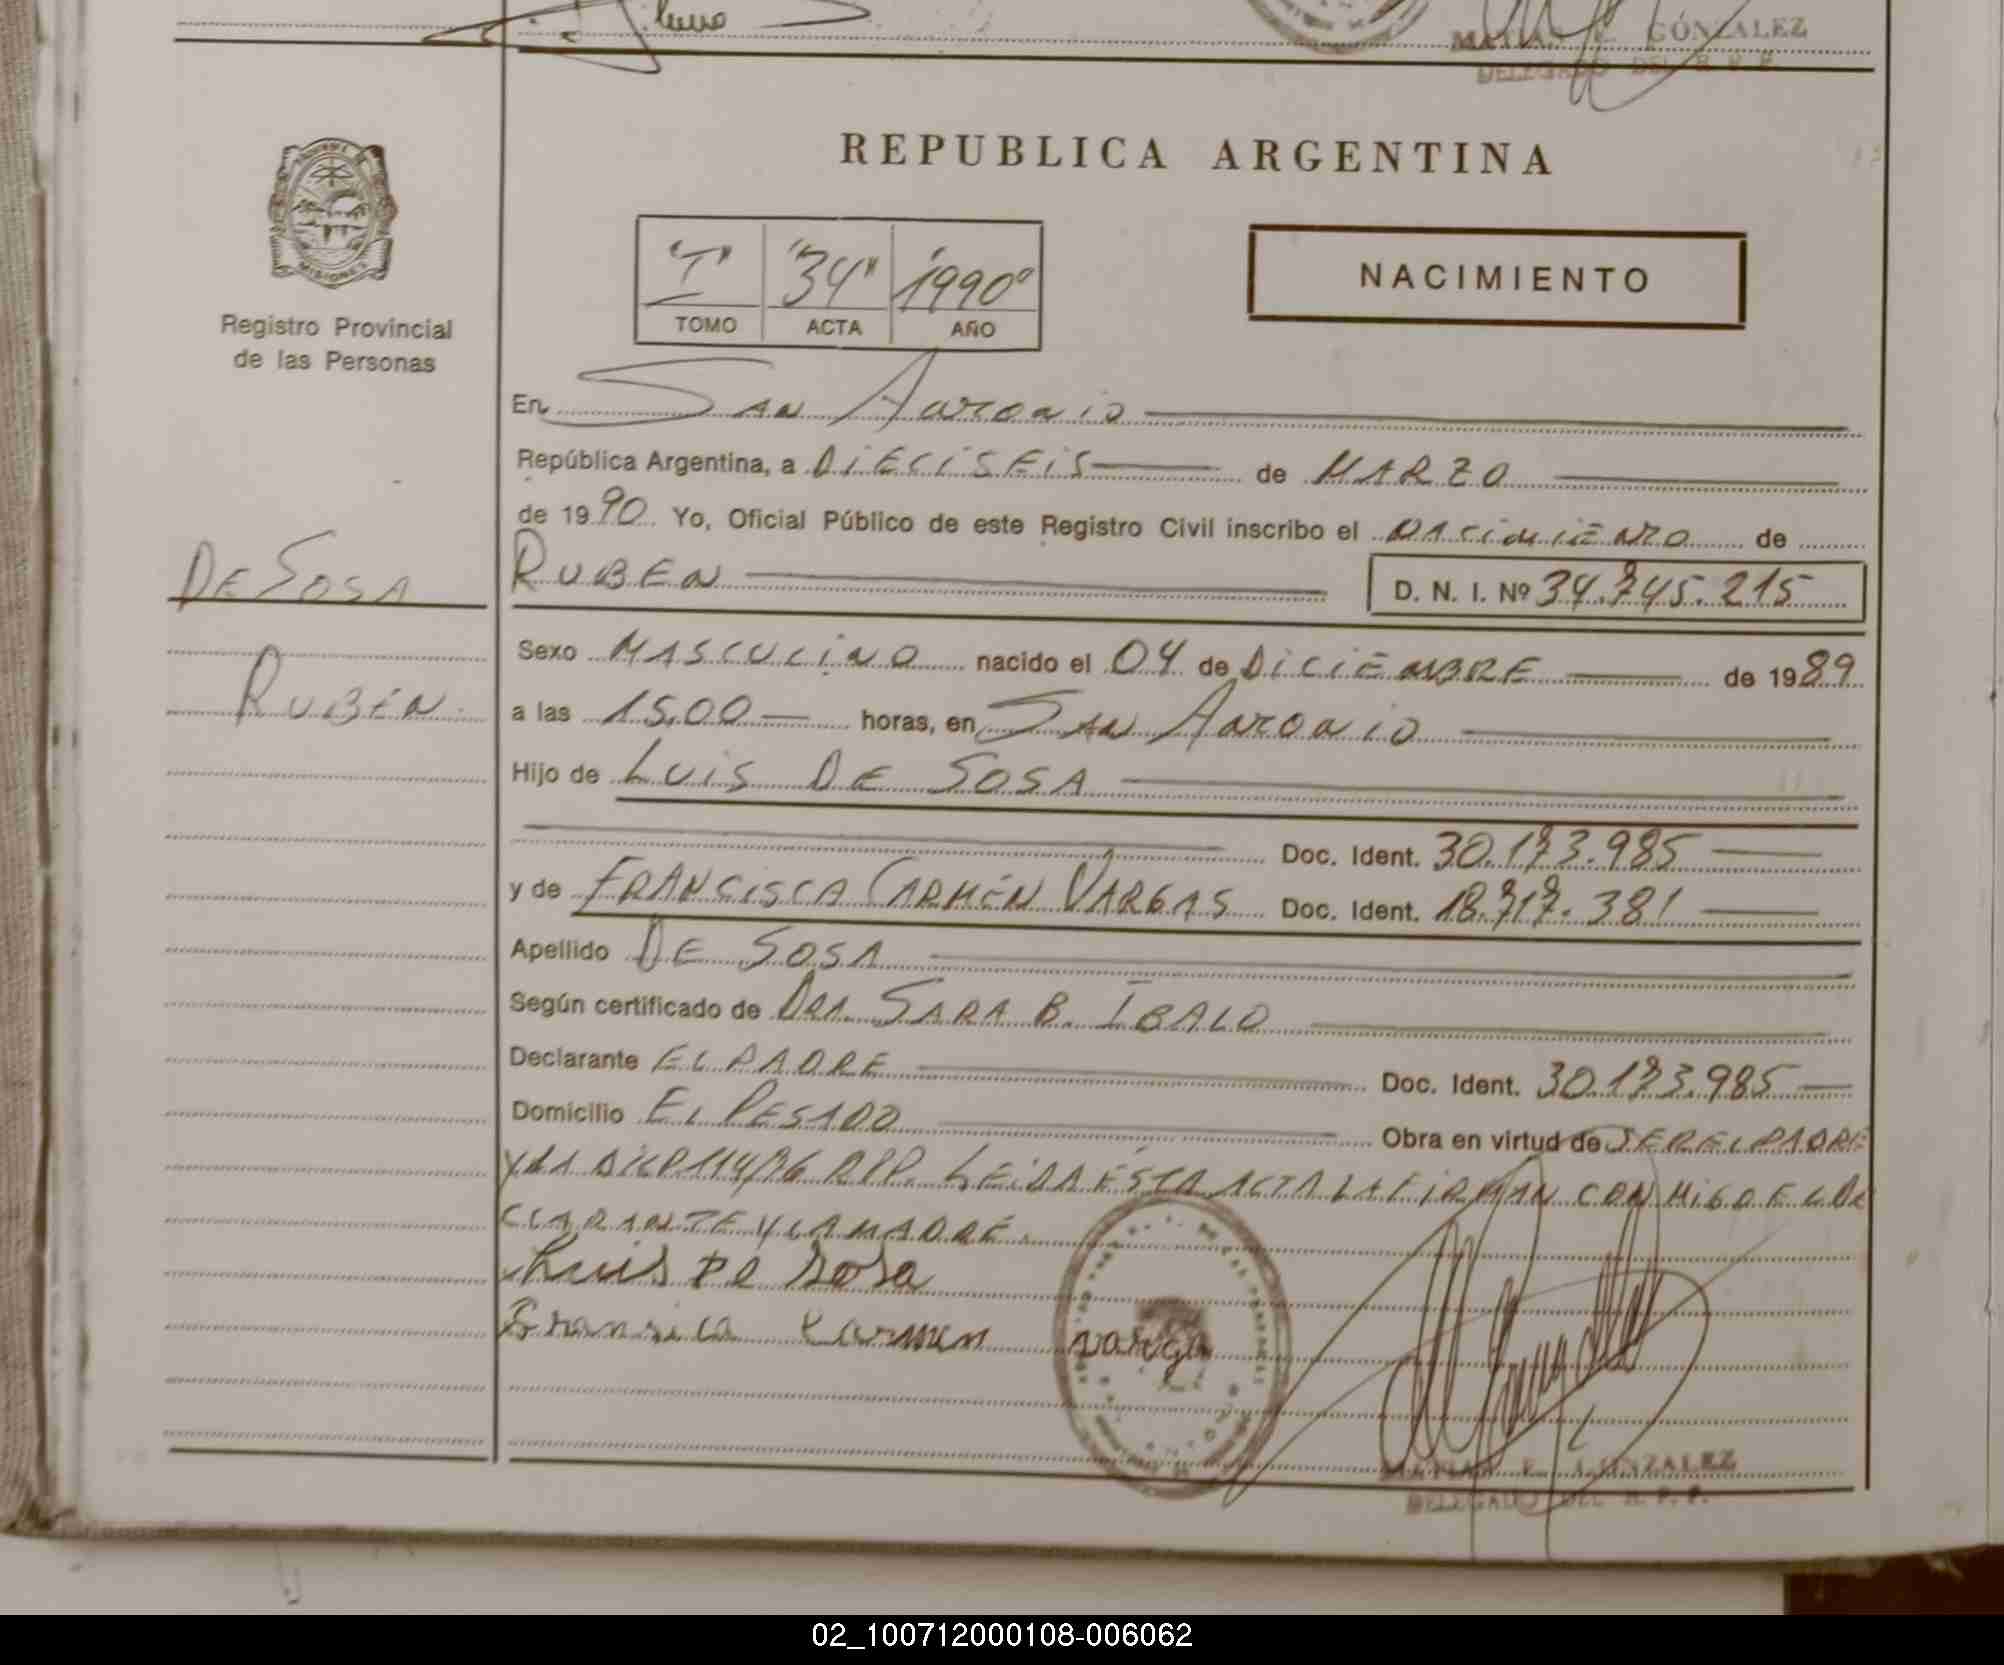 GONZALEZ
DELEGADO DEL R.P.P.
REPUBLICA ARGENTINA
MISIONES
Registro Provincial
de las Personas
"I" "34" "1990"
TOMO ACTA AÑO
NACIMIENTO
En San Antonio
República Argentina, a DIECISEIS de MARZO
de 1990 Yo, Oficial Público de este Registro Civil inscribo el NACIMIENTO de
DE SOSA
RUBEN
RUBEN D. N. I. Nº 34.745.215
Sexo MASCULINO nacido el 04 de DICIEMBRE de 1989
a las 15,00 horas, en San Antonio
Hijo de LUIS DE SOSA
Doc. Ident. 30.173.985
y de FRANCISCA CARMEN VARGAS Doc. Ident. 18.717.381
Apellido DE SOSA
Según certificado de DRA. SARA B. IBALO
Declarante EL PADRE Doc. Ident. 30.173.985
Domicilio EL PESADO Obra en virtud de SER EL PADRE
Y LA RPP. LEIDA ESTA ACTA LA FIRMAN CONMIGO EL DE
CLARANTE Y LA MADRE.
Luis De Sosa
Fransica Carmen varga
GONZALEZ
DELEGADO DEL R.P.P.
02_100712000108-006062